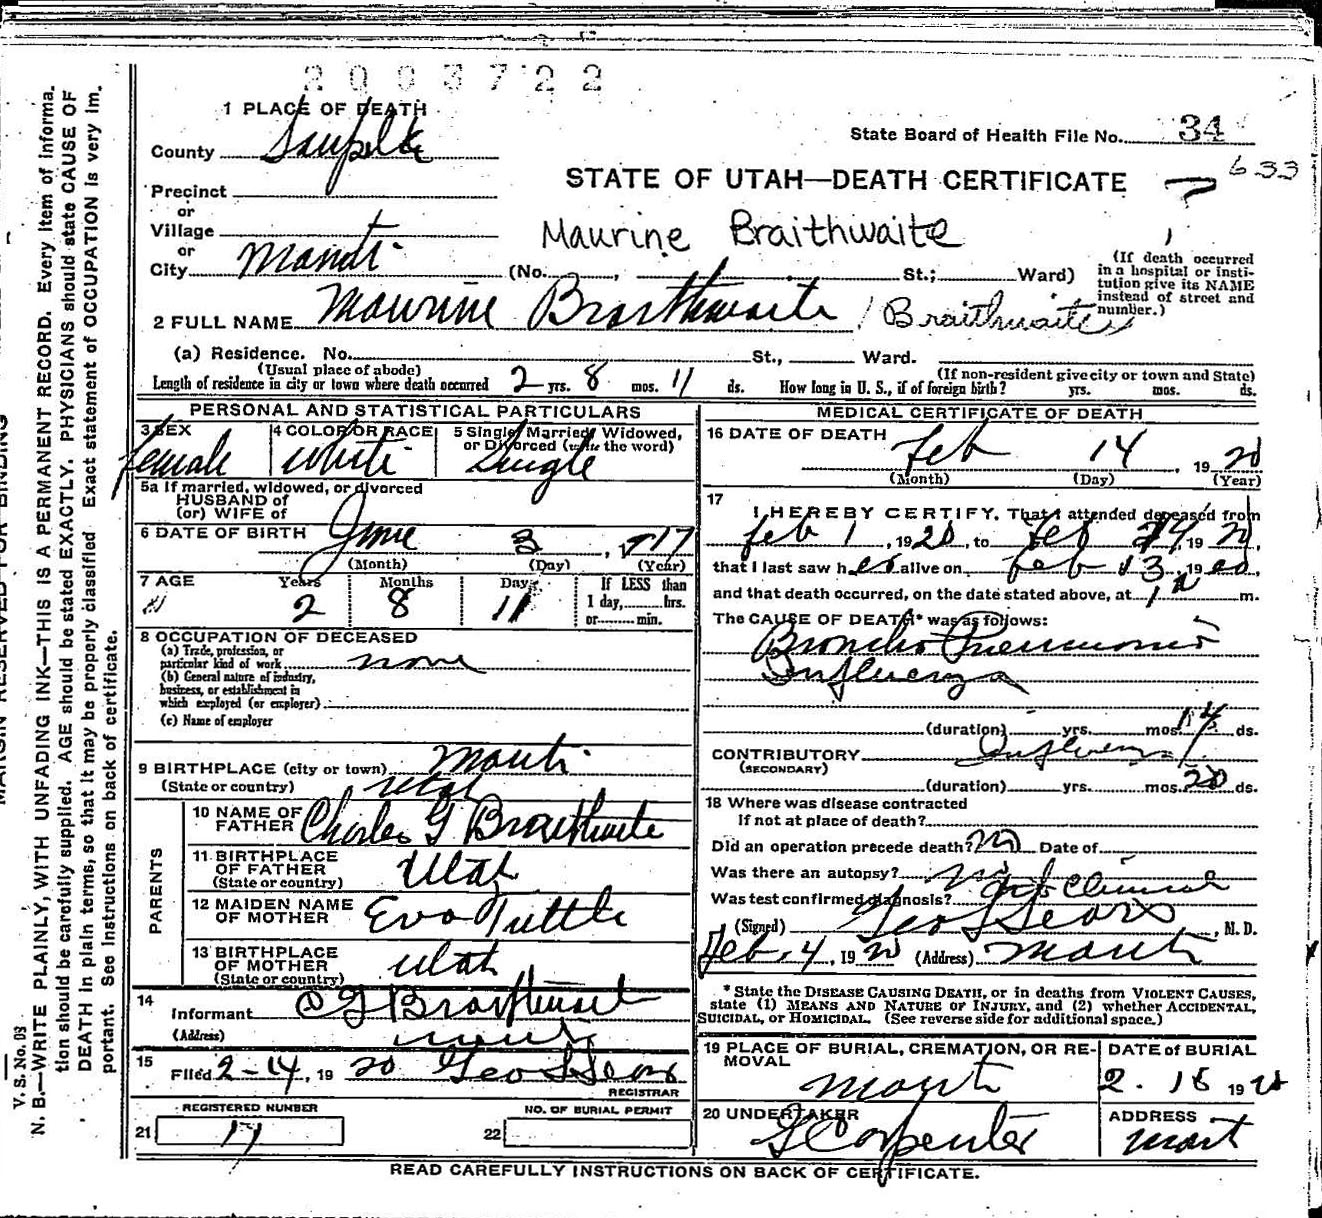 2003722
1 PLACE OF DEATH
State Board of Health File No. 34
County Sanpete
633
STATE OF UTAH—DEATH CERTIFICATE
Precinct
or
Village
Maurine Braithwaite
or
City Manti (No. , St.; Ward)
(If death occurred
in a hospital or insti-
tution give its NAME
instead of street and
number.)
2 FULL NAME Maurine Braithwaite / Braithwaite
(a) Residence. No. St., Ward.
(Usual place of abode) (If non-resident give city or town and State)
Length of residence in city or town where death occurred 2 yrs. 8 mos. 11 ds. How long in U. S., if of foreign birth? yrs. mos. ds.
PERSONAL AND STATISTICAL PARTICULARS
3 SEX Female
4 COLOR OR RACE White
5 Single, Married, Widowed,
or Divorced (write the word)
Single
5a If married, widowed, or divorced
HUSBAND of
(or) WIFE of
6 DATE OF BIRTH June 3, 17
(Month) (Day) (Year)
7 AGE Years Months Days If LESS than
2 8 11 1 day, hrs.
or min.
8 OCCUPATION OF DECEASED
(a) Trade, profession, or
particular kind of work none
(b) General nature of industry,
business, or establishment in
which employed (or employer)
(c) Name of employer
9 BIRTHPLACE (city or town) Manti
(State or country) Utah
PARENTS
10 NAME OF
FATHER Charles G Braithwaite
11 BIRTHPLACE
OF FATHER Utah
(State or country)
12 MAIDEN NAME
OF MOTHER Eva Tuttle
13 BIRTHPLACE
OF MOTHER Utah
(State or country)
14
Informant C G Braithwaite
(Address) Manti
15
Filed 2-14, 1920 Geo L Sears
REGISTRAR
REGISTERED NUMBER
21 17
NO. OF BURIAL PERMIT
22
MEDICAL CERTIFICATE OF DEATH
16 DATE OF DEATH Feb 14, 1920
(Month) (Day) (Year)
17
I HEREBY CERTIFY, That I attended deceased from
Feb 1, 1920, to Feb 14, 1920,
that I last saw her alive on Feb 13, 1920,
and that death occurred, on the date stated above, at 1 a m.
The CAUSE OF DEATH* was as follows:
Broncho Pneumonia
Influenza
(duration) yrs. mos. 14 ds.
CONTRIBUTORY Influenza
(SECONDARY)
(duration) yrs. mos. 20 ds.
18 Where was disease contracted
if not at place of death?
Did an operation precede death? No Date of
Was there an autopsy? No
Was test confirmed diagnosis? Clinical
(Signed) Geo L Sears, M. D.
Feb. 4, 1920 (Address) Manti
* State the DISEASE CAUSING DEATH, or in deaths from VIOLENT CAUSES,
state (1) MEANS AND NATURE OF INJURY, and (2) whether ACCIDENTAL,
SUICIDAL, or HOMICIDAL. (See reverse side for additional space.)
19 PLACE OF BURIAL, CREMATION, OR RE-
MOVAL
Manti
DATE of BURIAL
2. 15 1920
20 UNDERTAKER
Carpenter
ADDRESS
Manti
READ CAREFULLY INSTRUCTIONS ON BACK OF CERTIFICATE.
V. S. No. 93
MARGIN RESERVED FOR BINDING
N. B.—WRITE PLAINLY, WITH UNFADING INK—THIS IS A PERMANENT RECORD. Every item of informa-
tion should be carefully supplied. AGE should be stated EXACTLY. PHYSICIANS should state CAUSE OF
DEATH in plain terms, so that it may be properly classified. Exact statement of OCCUPATION is very im-
portant. See instructions on back of certificate.